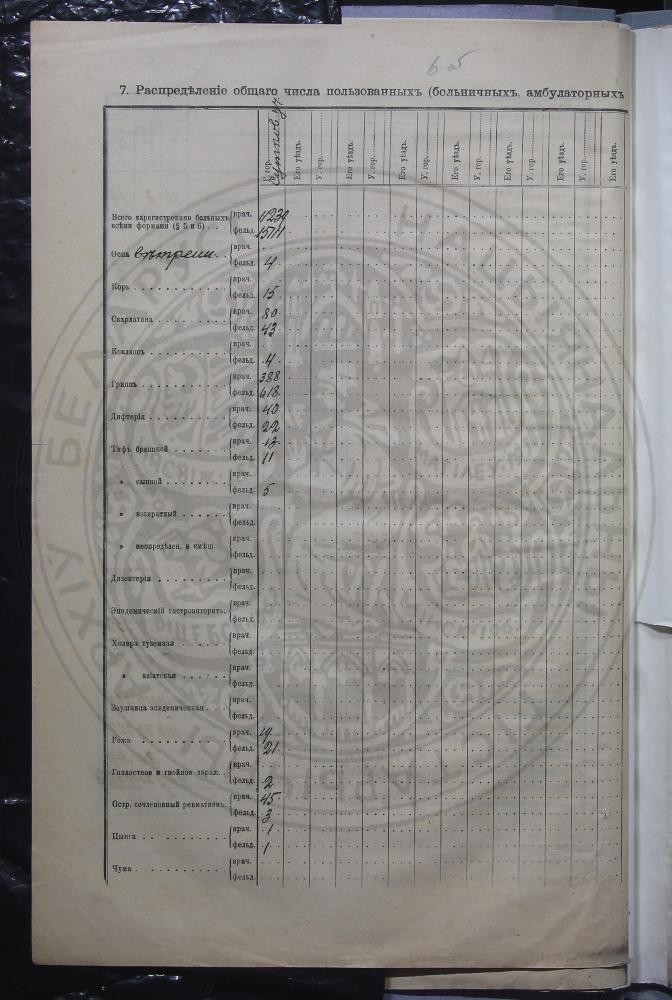 7. Распредѣленіе общаго числа пользованныхъ (больничныхъ, амбулаторныхъ
У. гор. Его уѣздъ. У. гор. Его уѣздъ. У. гор. Его уѣздъ. У. гор. Его уѣздъ. У. гор. Его уѣздъ. У. гор. Его уѣздъ. У. гор. Его уѣздъ.
Всего зарегистровано больныхъ врач. 11239
всѣми формами (§ 5 и 6) . . фельд. 15711
Оспа врач.
фельд. 4
Корь врач.
фельд. 15
Скарлатина врач. 80
фельд. 43
Коклюшъ врач.
фельд. 4
Гриппъ врач. 388
фельд. 618
Дифтерія врач. 40
фельд. 22
Тифъ брюшной врач. 13
фельд. 11
» сыпной врач.
фельд. 5
» возвратный врач.
фельд.
» неопредѣлен. и смѣш. врач.
фельд.
Дизентерія врач.
фельд.
Эпидемическій гастроэнтеритъ. врач.
фельд.
Холера туземная врач.
фельд.
» азіатская врач.
фельд.
Заушница эпидемическая врач.
фельд.
Рожа врач. 19
фельд. 21
Гнилостное и гнойное зараж. врач.
фельд. 2
Остр. сочленовный ревматизмъ. врач. 45
фельд. 3
Цынга врач. 1
фельд. 1
Чума врач.
фельд.